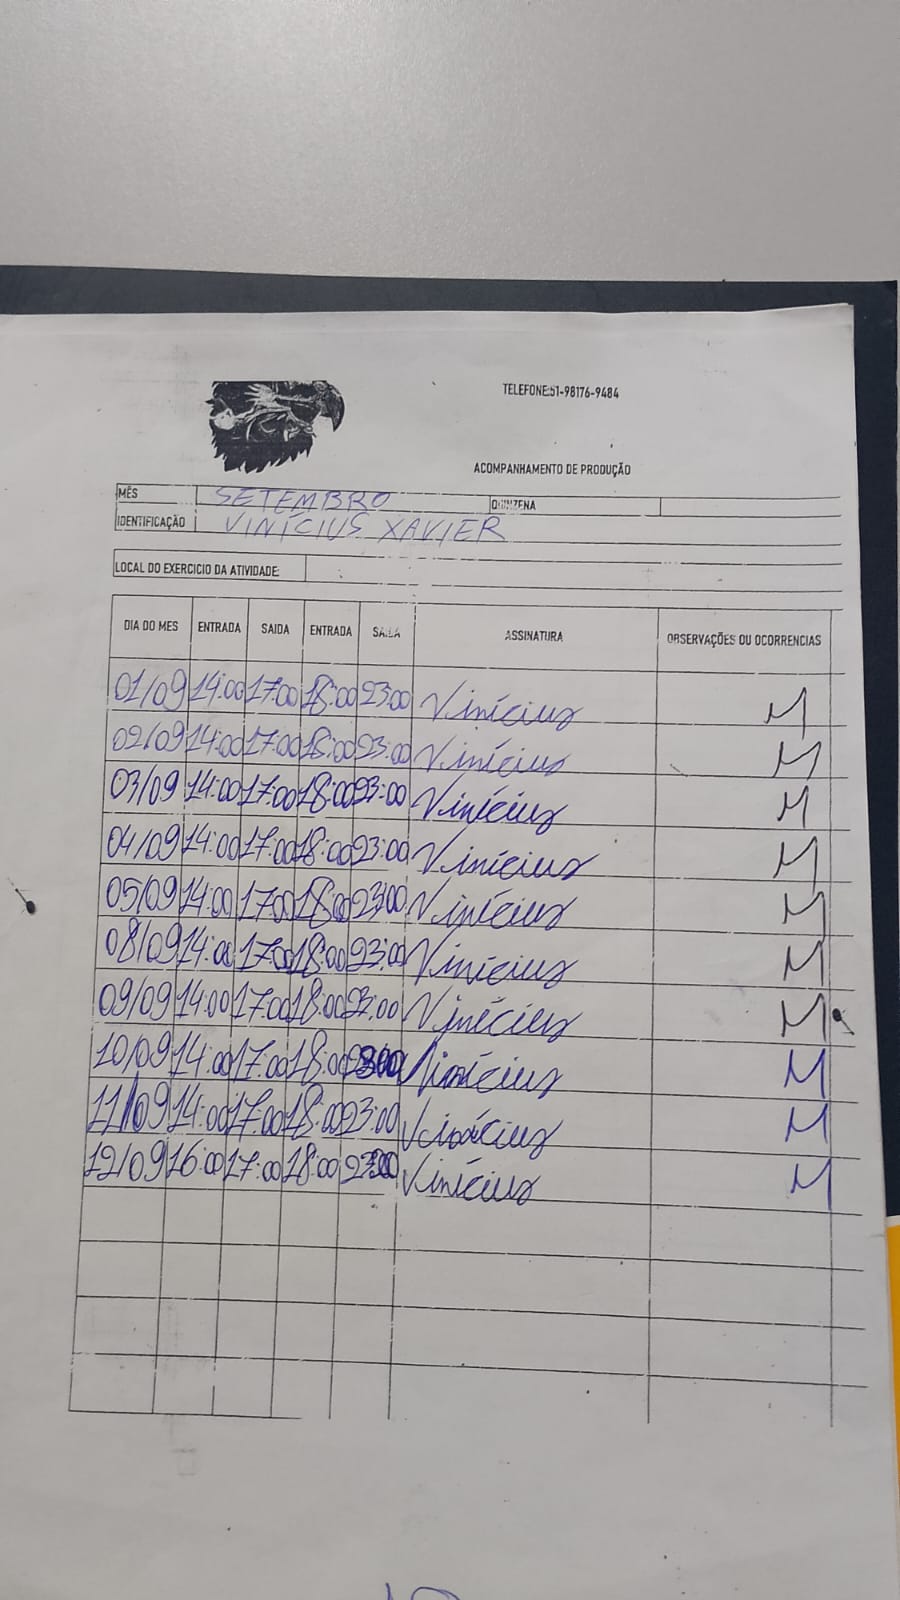 TELEFONE:51-98176-9484
ACOMPANHAMENTO DE PRODUÇÃO
MÊS SETEMBRO QUINZENA
IDENTIFICAÇÃO VINÍCIUS XAVIER
LOCAL DO EXERCICIO DA ATIVIDADE:
DIA DO MES ENTRADA SAIDA ENTRADA SAIDA ASSINATURA OBSERVAÇÕES OU OCORRENCIAS
01/09 14:00 17:00 18:00 23:00 Vinícius M
02/09 14:00 17:00 18:00 23:00 Vinícius M
03/09 14:00 17:00 18:00 23:00 Vinícius M
04/09 14:00 17:00 18:00 23:00 Vinícius M
05/09 14:00 17:00 18:00 23:00 Vinícius M
08/09 14:00 17:00 18:00 23:00 Vinícius M
09/09 14:00 17:00 18:00 23:00 Vinícius M
10/09 14:00 17:00 18:00 23:00 Vinícius M
11/09 14:00 17:00 18:00 23:00 Vinícius M
12/09 16:00 17:00 18:00 23:00 Vinícius M